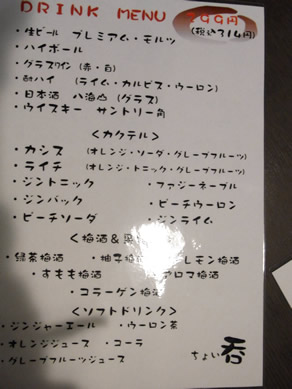 DRINK MENU 299円
(税込314円)
・生ビール プレミアム・モルツ
・ハイボール
・グラスワイン (赤・白)
・酎ハイ (ライム・カルピス・ウーロン)
・日本酒 八海山 (グラス)
・ウイスキー サントリー角
<カクテル>
・カシス (オレンジ・ソーダ・グレープフルーツ)
・ライチ (オレンジ・トニック・グレープフルーツ)
・ジントニック ・ファジーネーブル
・ジンバック ・ピーチウーロン
・ピーチソーダ ・ジンライム
<梅酒&果
・緑茶梅酒 ・柚子梅酒 レモン梅酒
・すもも梅酒 アロマ梅酒
・コラーゲン梅酒
<ソフトドリンク>
・ジンジャーエール ・ウーロン茶
・オレンジジュース ・コーラ
・グレープフルーツジュース
ちょい呑